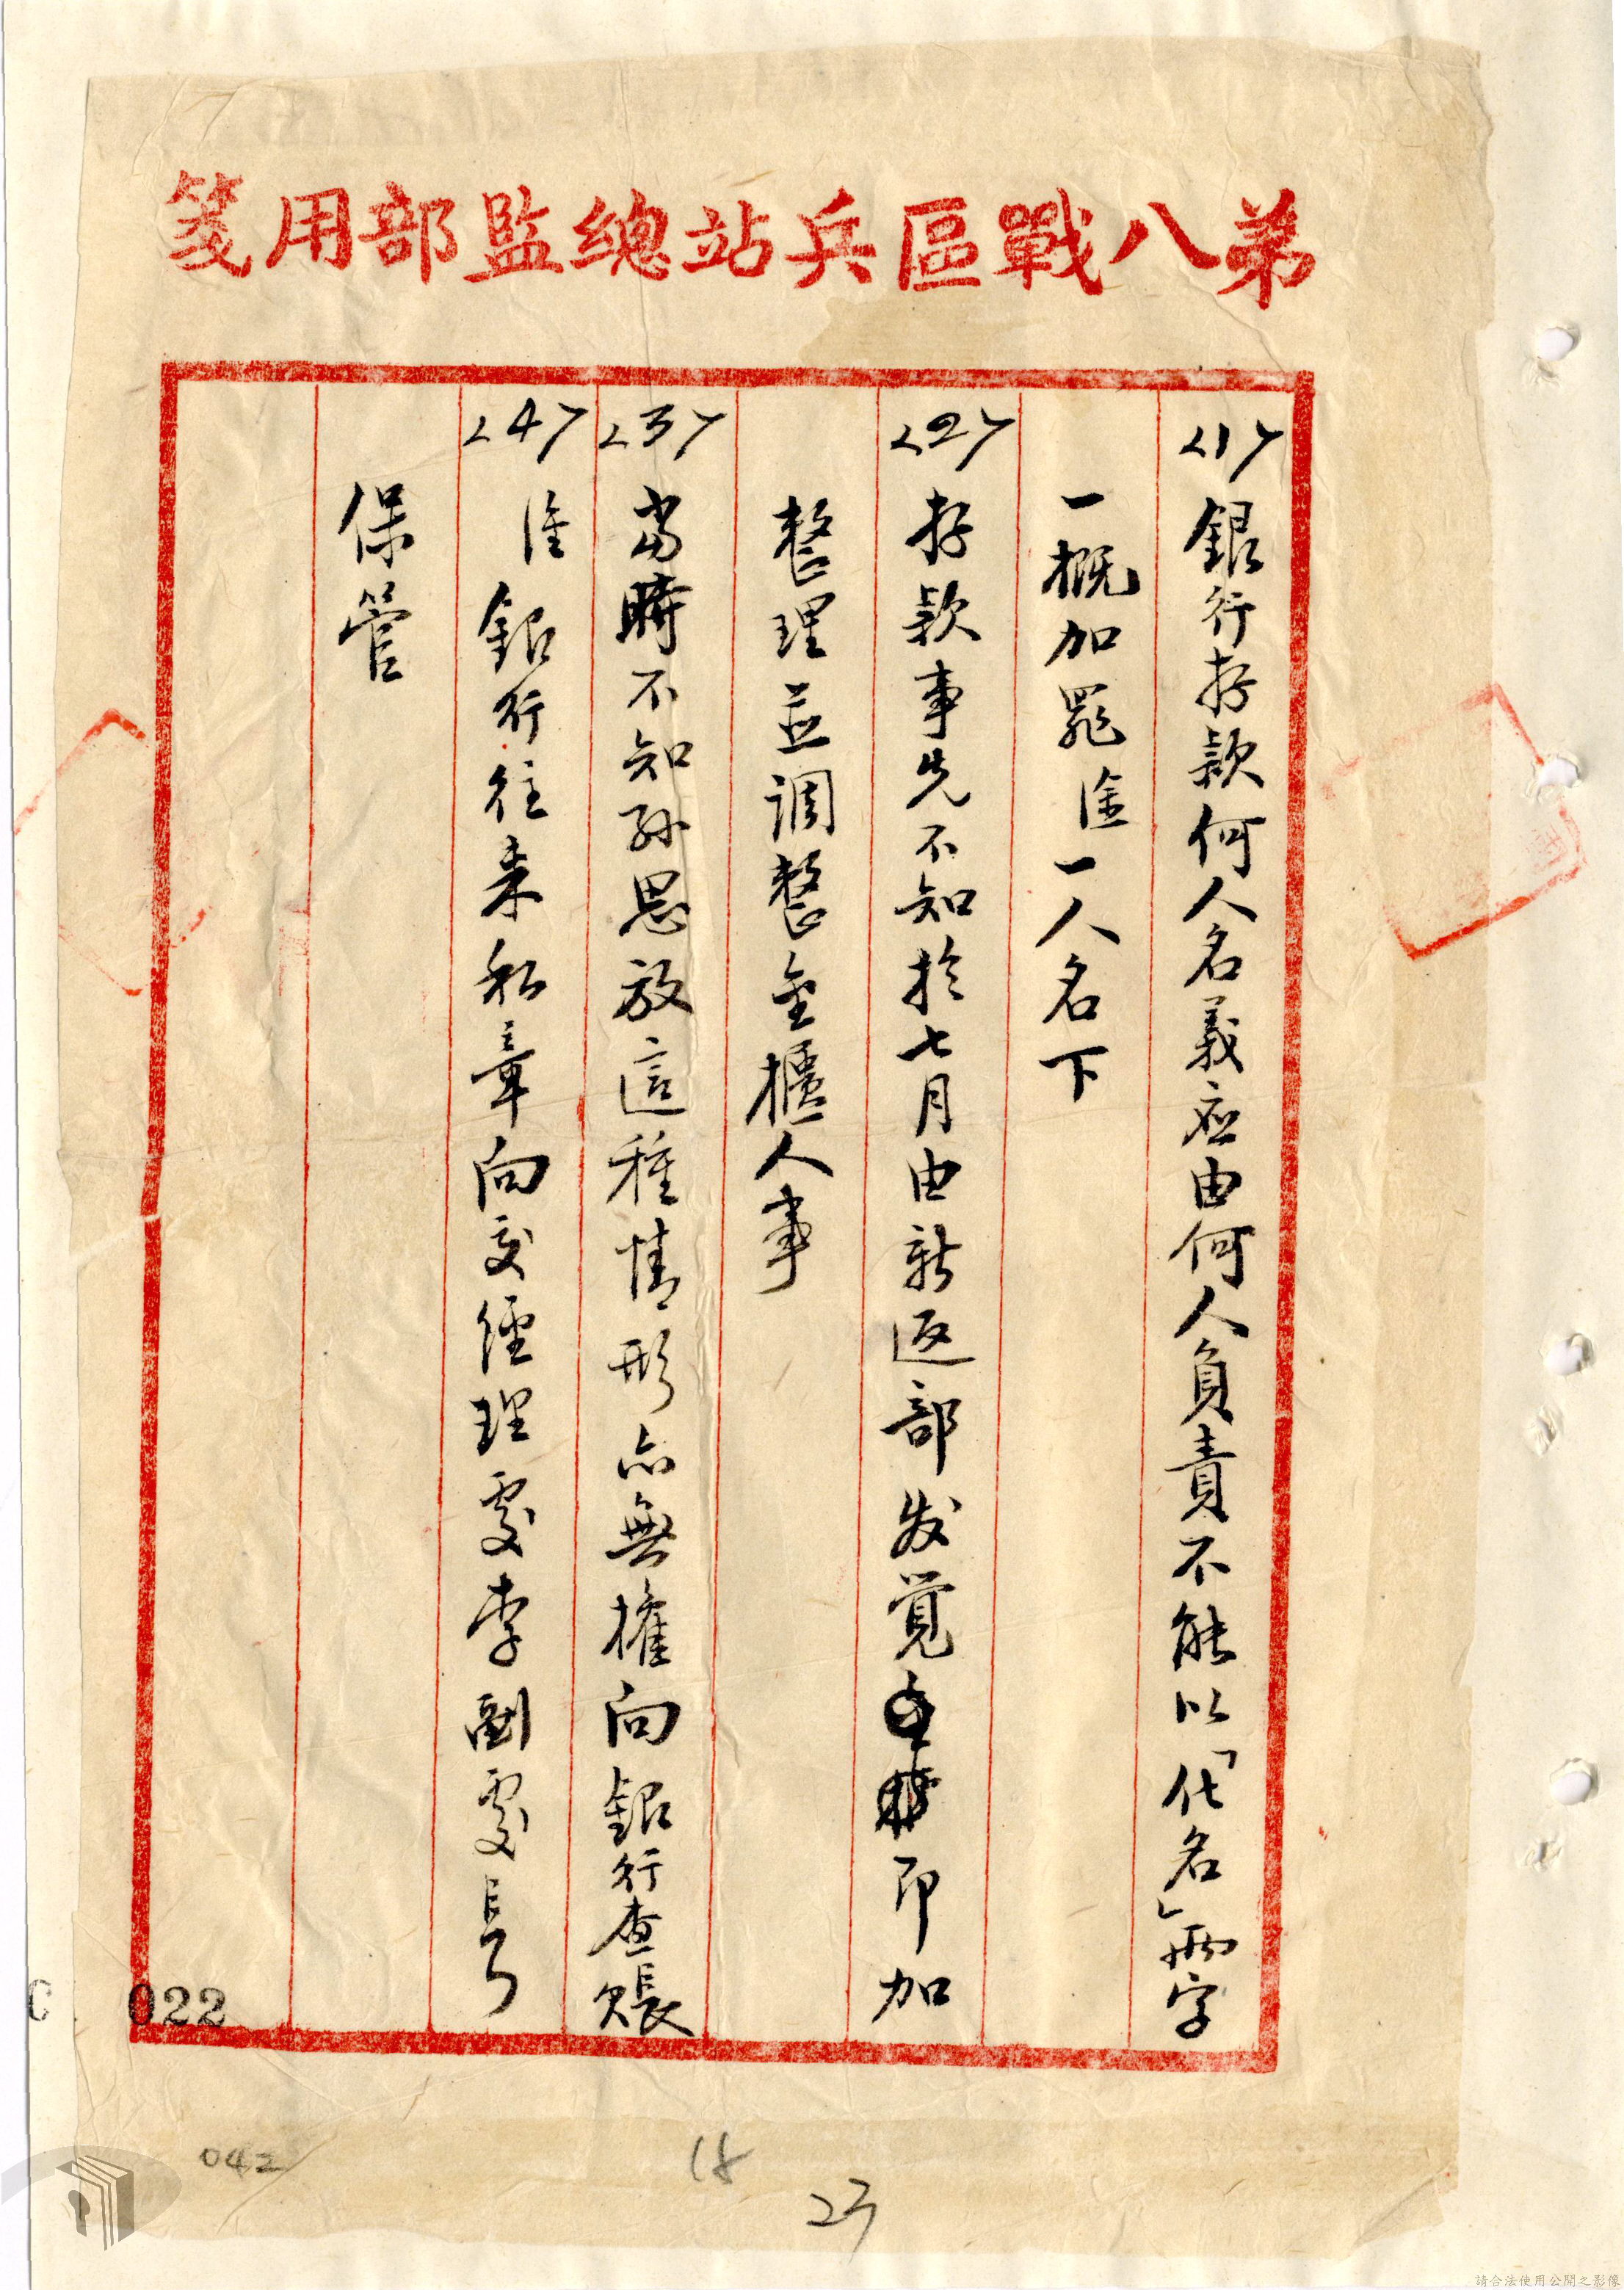 第八戰區兵站總監部用箋
<1>銀行存款何人名義應由何人負責不能以「代名」兩字
一概加罪一人名下
<2>存款事先不知於七月由新返部发覺即加
整理並調整金櫃人事
<3>當時不知孫恩放這種情形亦無權向銀行查賬
<4>銀行往來私章向交經理處李副處長
保管
022
042
18
23
請合法使用公開之影像